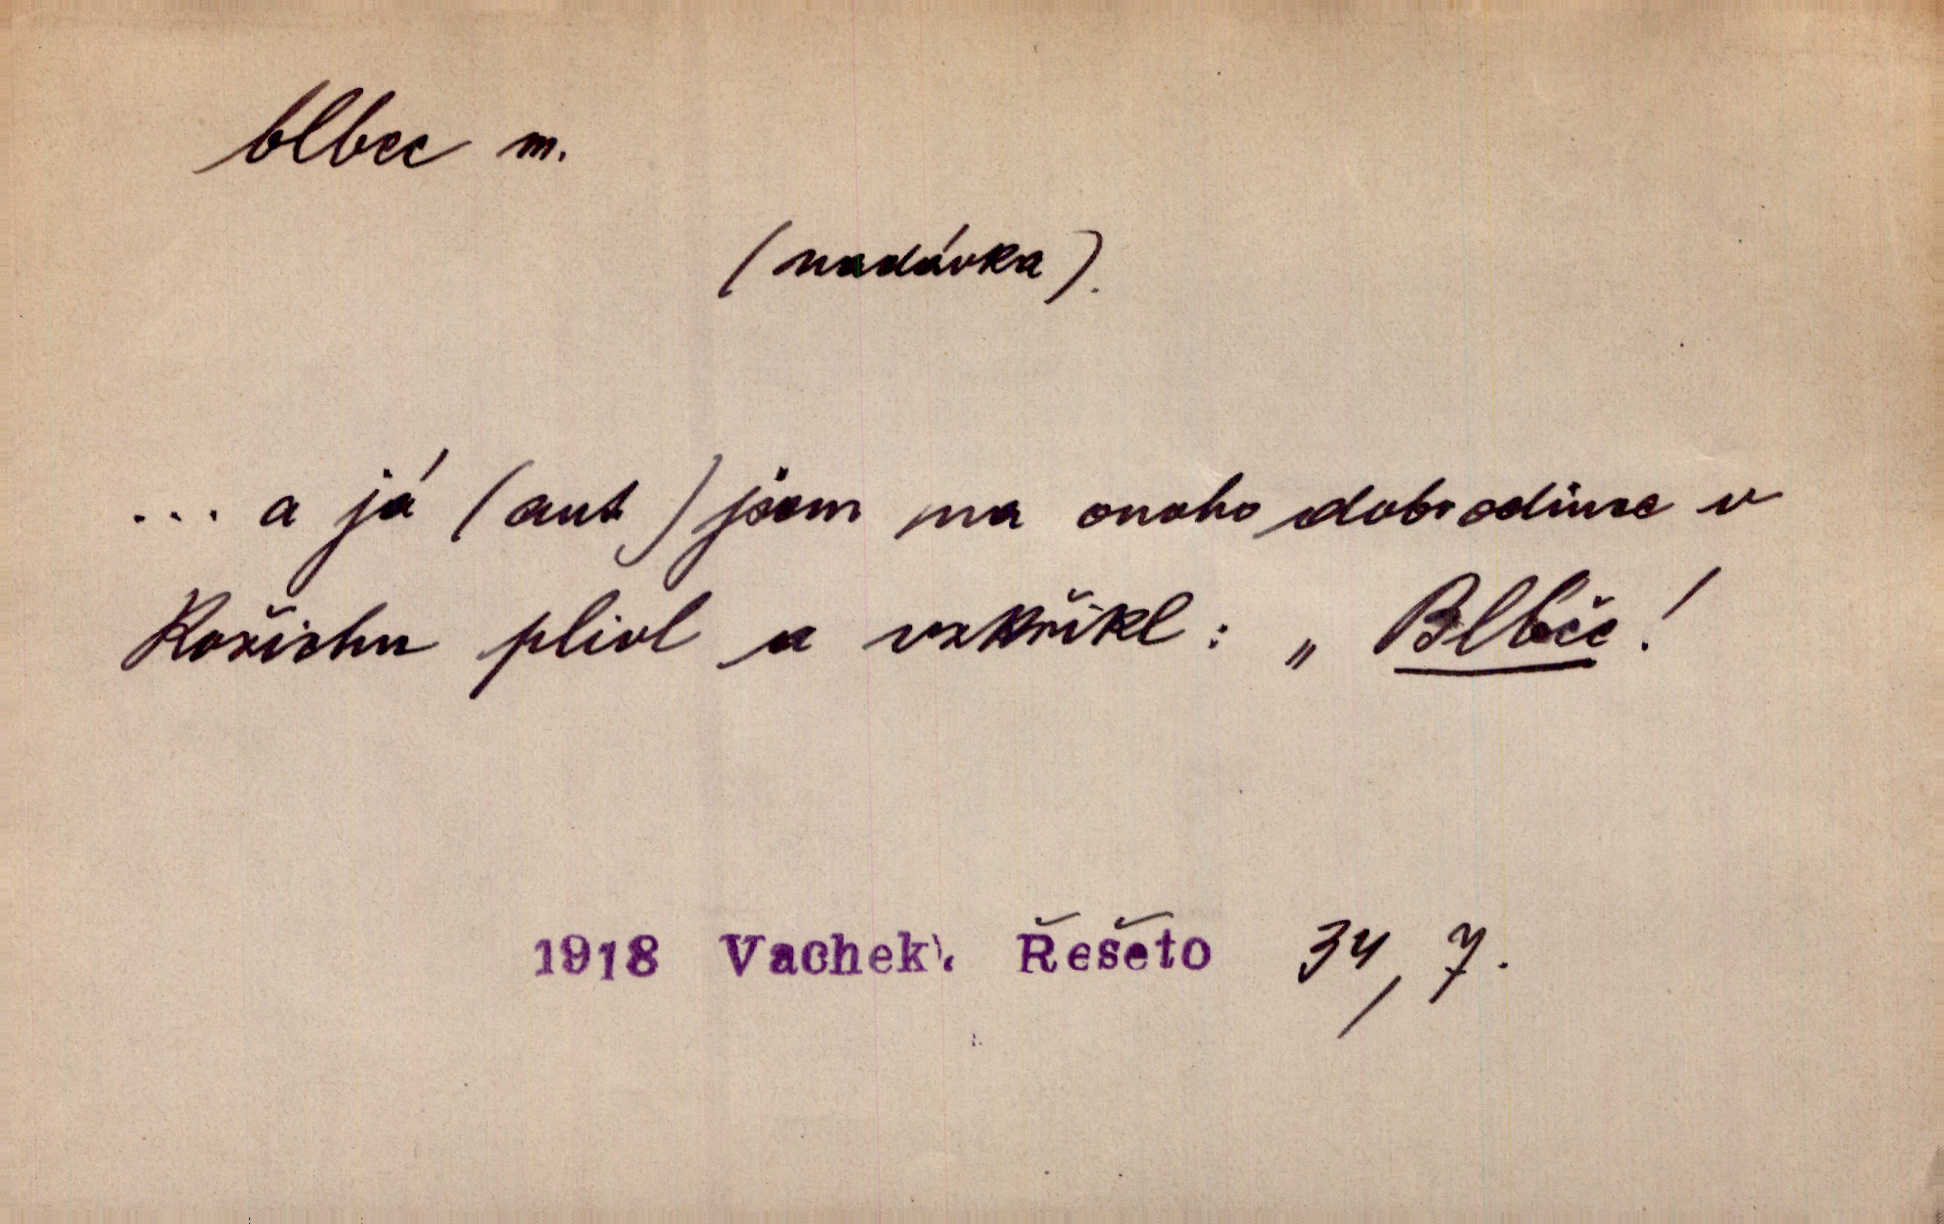 blbec m.
(nadávka).
... a já (aut) jsem na onoho dobrodince v
Kožichu plivl a vzkřikl: „Blbče!
1918 Vachek. Řešeto 34, 7.